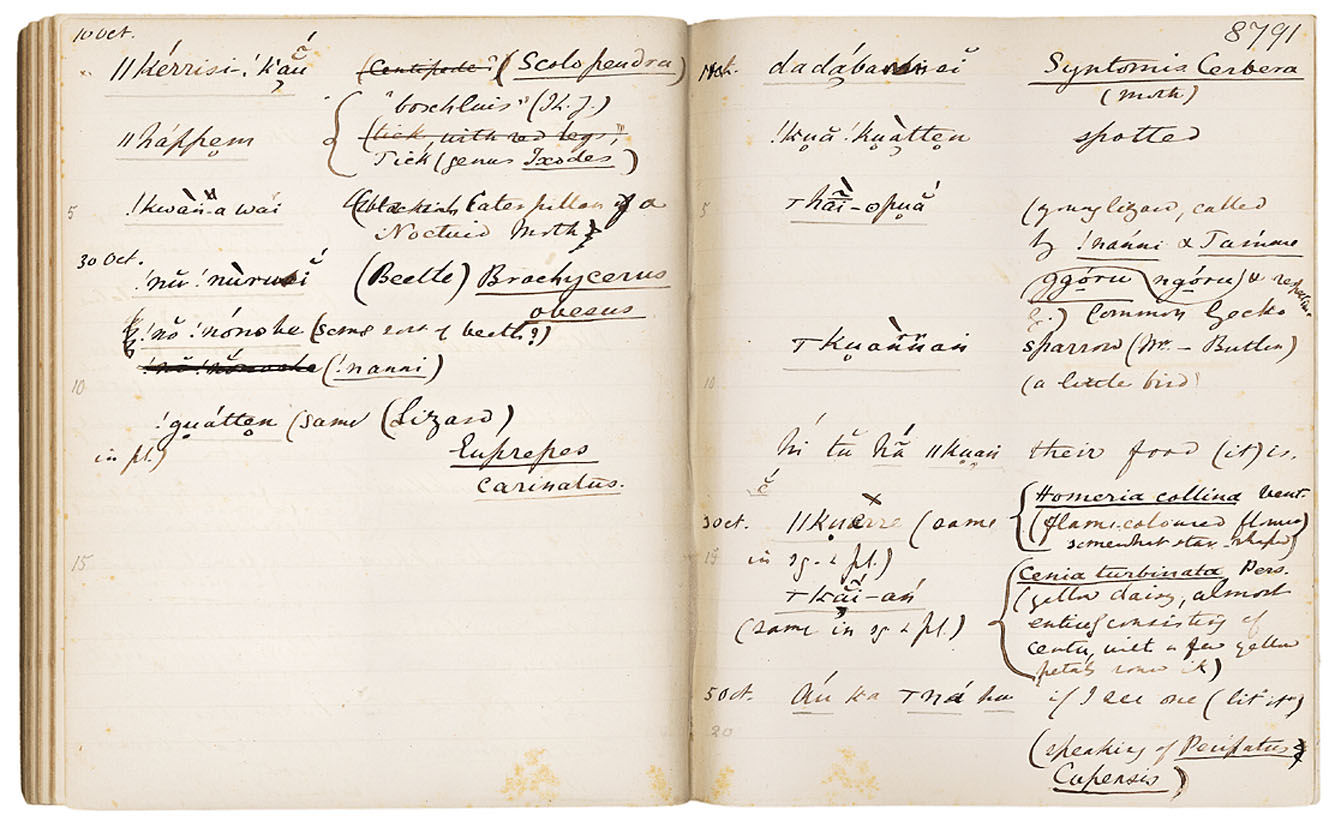 10 Oct.
ǁkérrisi-!k'ắŭ (Centipede?) (Scolopendra)
"boschluis" (H.J.)
ǁháppem (tick, with red legs,
Tick (genus Ixodes)
5 !kwàn̈-a wái (blackish Caterpillar of a
Noctuid Moth)
30 Oct.
!nŭ !nùru (Beetle) Brachycerus
obesus
!nŏ !nónoke (some sort of beetle?)
(!nanni)
10
!guátten (same (Lizard)
in pl.) Euprepes
carinatus.
15
8791
Oct. dadába Syntomis Cerbera
(moth)
!kuă !kuàtten spotted
5 ꞆhȁĨ-opuá̆ (young lizard, called
by !nanni & Tamme
ggóru (ngóru) &
) Common Gecko
Ꞇkuan̈n̈an sparrow (Mr. – Butler)
10 (a little bird)
hí tŭ hā̆ ǁkuan their food (it) is.
Homeria collina Vent.
3 Oct. ǁkuárre (same (flame-coloured flower
somewhat star-shaped)
15 in sg. & pl.)
Cenia turbinata Pers.
Ꞇkắi-ań (yellow daisy, almost
(same in sg. & pl.) entirely consisting of
centre, with a few yellow
petals round it)
5 Oct. Áú ka Ꞇná ha if I see one (lit it)
20
(speaking of Peripatus
Capensis)